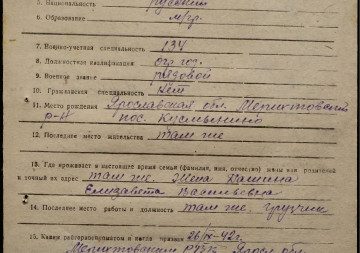 5. Национальность русский
6. Образование м/гр.
7. Военно-учетная специальность 134
8. Должностная квалификация
9. Военное звание рядовой
10. Гражданская специальность нет
11. Место рождения Ярославская обл.
р-н пос.
12. Последнее место жительства там же
13. Где проживает в настоящее время семья (фамилия, имя, отчество) жены или родителей
и точный их адрес там же. Жена
Елизавета Васильевна
14. Последнее место работы и должность там же. грузчик
15. Каким райгорвоенкоматом и когда призван 26/IX-42г.
РВК Яросл. обл.